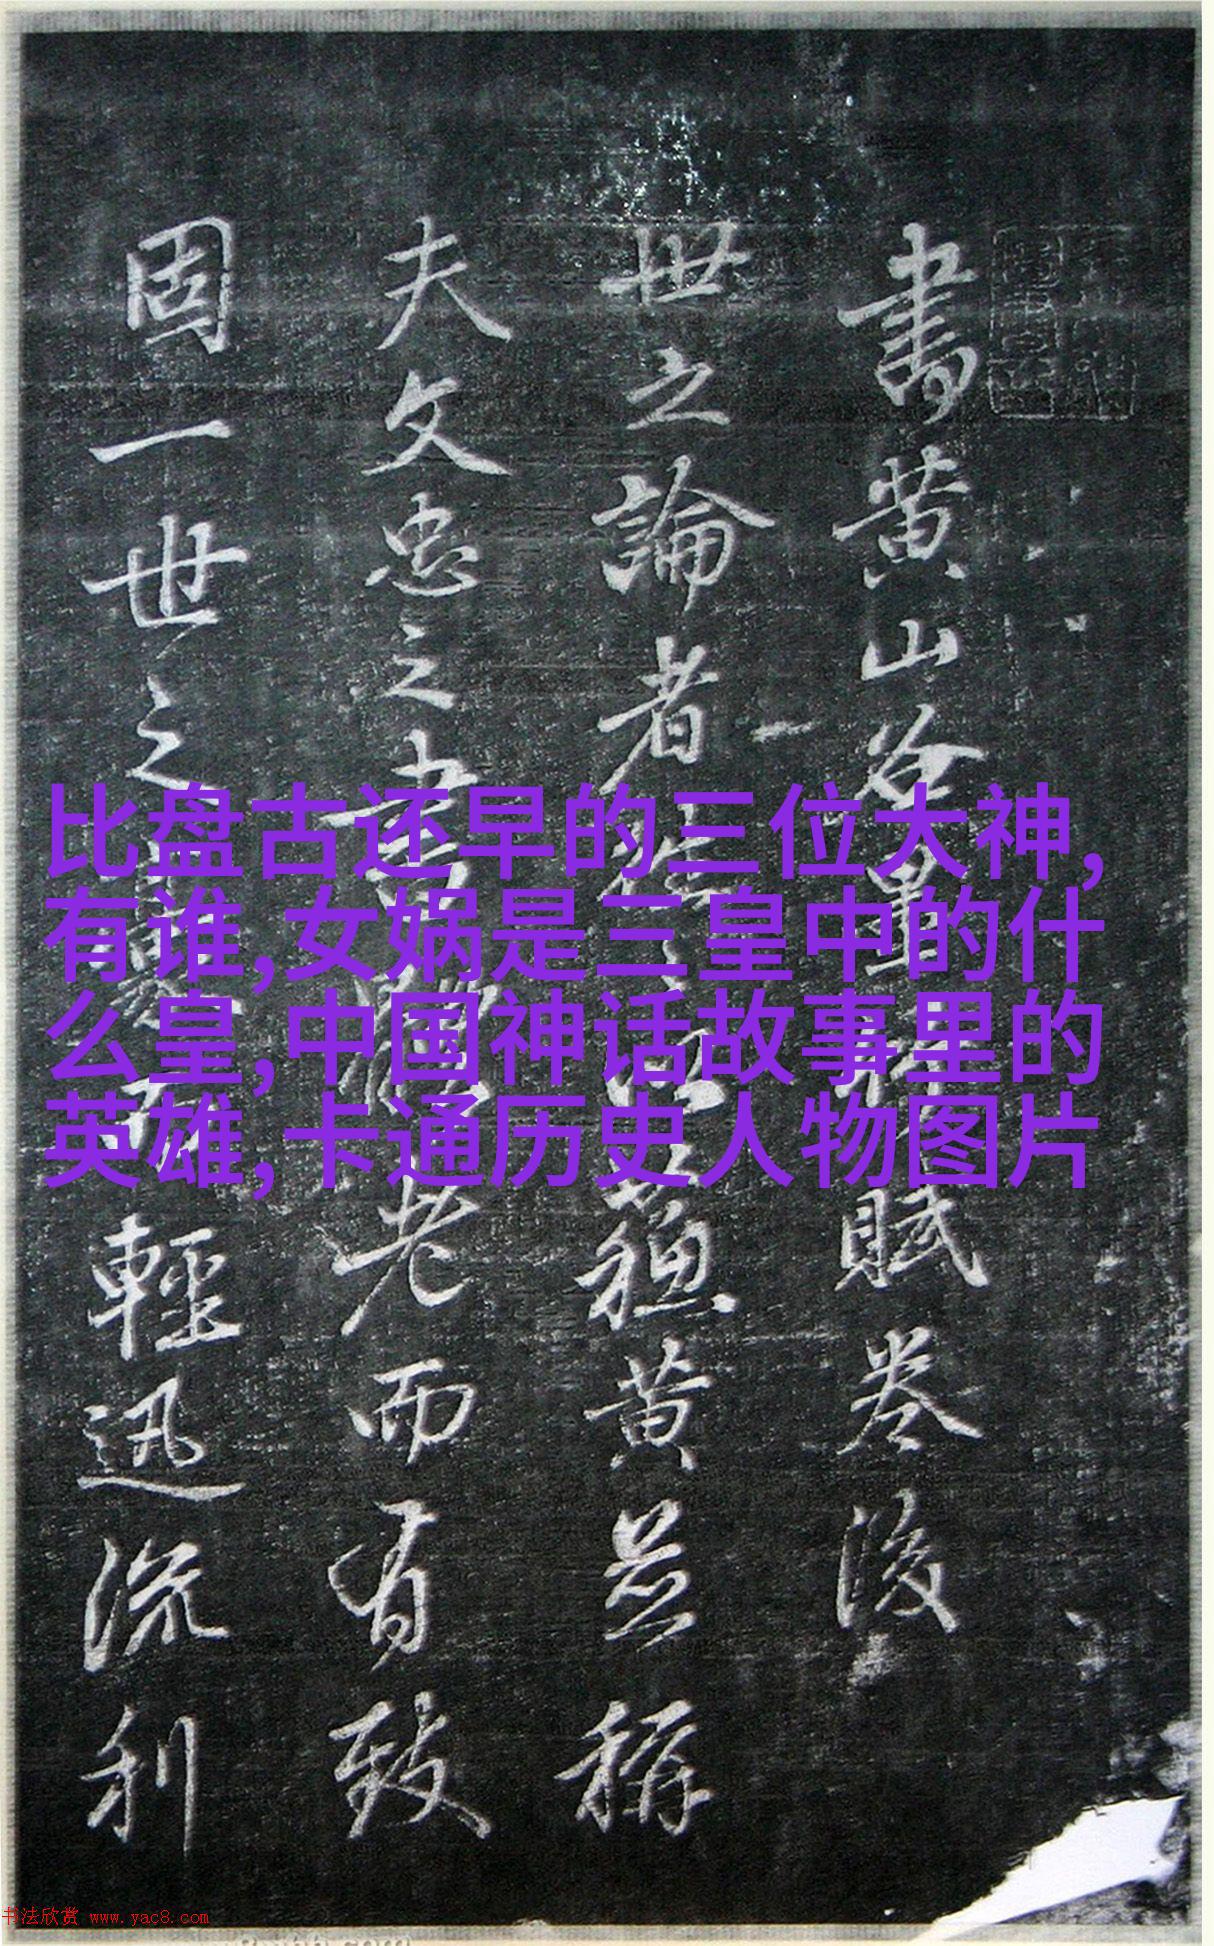 書黄山谷墨賦卷後
世之論者以蘓黄並稱
夫文忠之書老而有致
固一世之輕迅流利
比盘古还早的三位大神,
有谁,女娲是三皇中的什
么皇,中国神话故事里的
英雄,卡通历史人物图片
书法欣赏 www.yac8.com